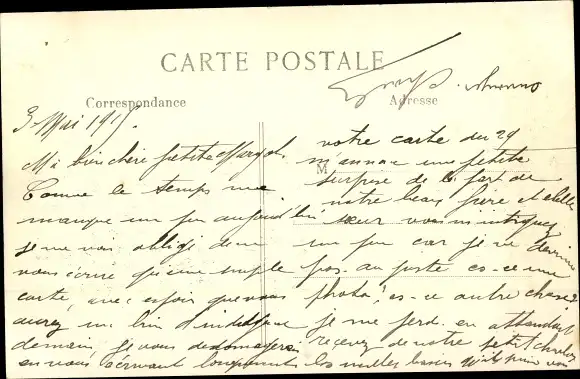 CARTE POSTALE
Correspondance
Adresse
M
3 Mai 191
Ma bien chère petite Margot
Comme le temps me
manque un peu aujourd'hui
je me vois obligé de ne
vous écrire qu'une simple
carte, avec espoir que vous
aurez un bien
demain, je vous
en vous écrivant longuement
votre carte du 29
m'annonce une petite
surprise de la part de
votre beau frère et belle
sœur vous m'intriguez
un peu car je ne devine
pas au juste es-ce une
photo, es-ce autre chose?
je me perd. en attendant
recevez de votre petit
les meilleurs baisers